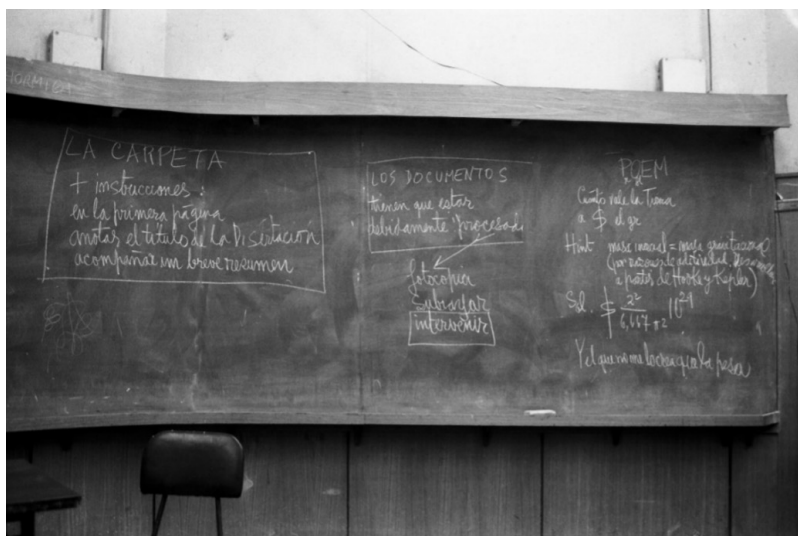 LA CARPETA
+ instrucciones :
en la primera página
anotar el título de la Disertación
acompañar un breve resumen
LOS DOCUMENTOS
tienen que estar
debidamente procesad
fotocopiar
Subrayar
intervenir
POEM
Cuánto vale la Tierra
a $ el gr
Hint masa inercial = masa gravitacional
(por razones de
a partir de Hooke y Kepler)
Sol. $ 2² / 6,667 π² 10²⁹
Y el que no me lo crea que la pese